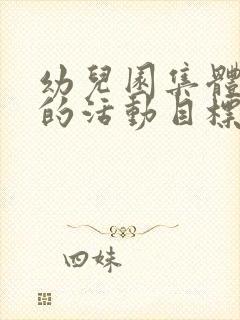 幼兒園集體
的活動目標
四妹